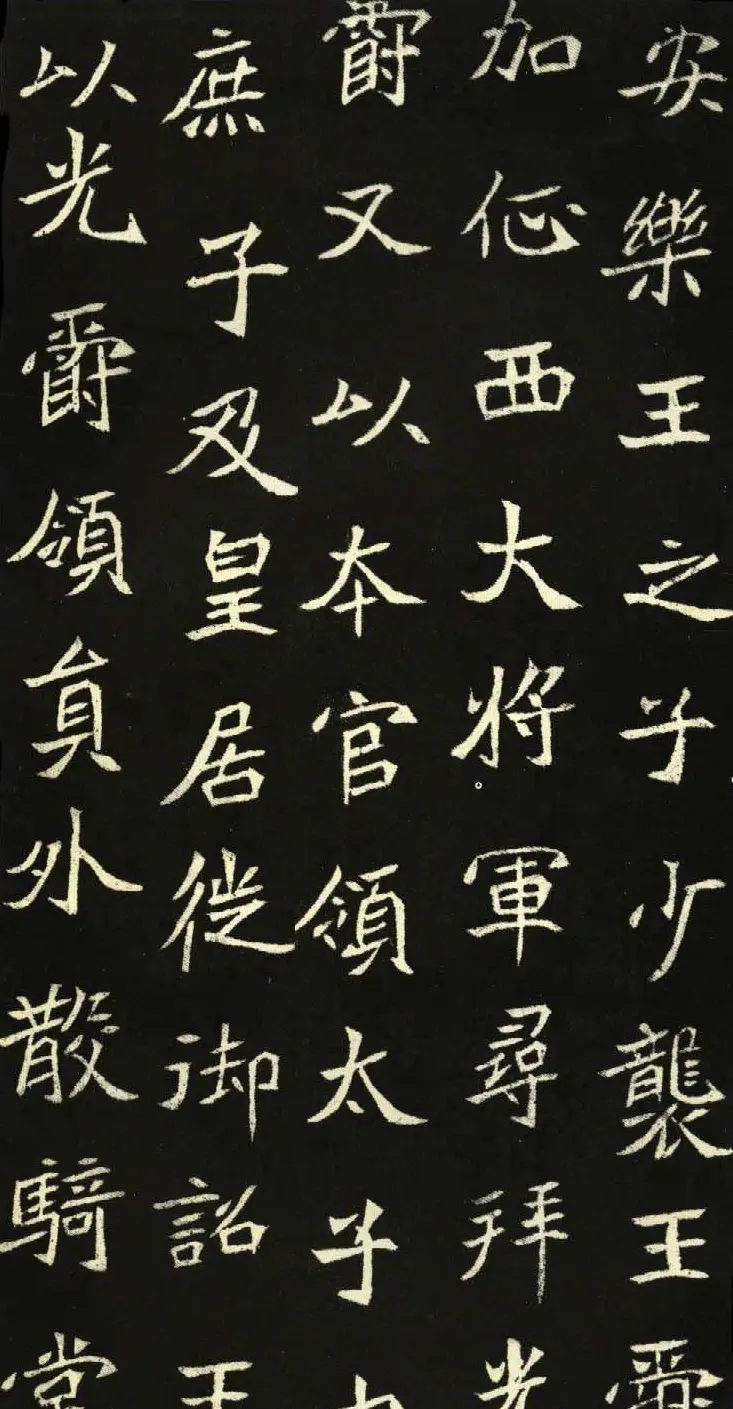 安樂王之子少襲王爵
加征西大將軍尋拜光
爵又以本官領太子中
庶子及皇居徙御詔王
以光爵領員外散騎常